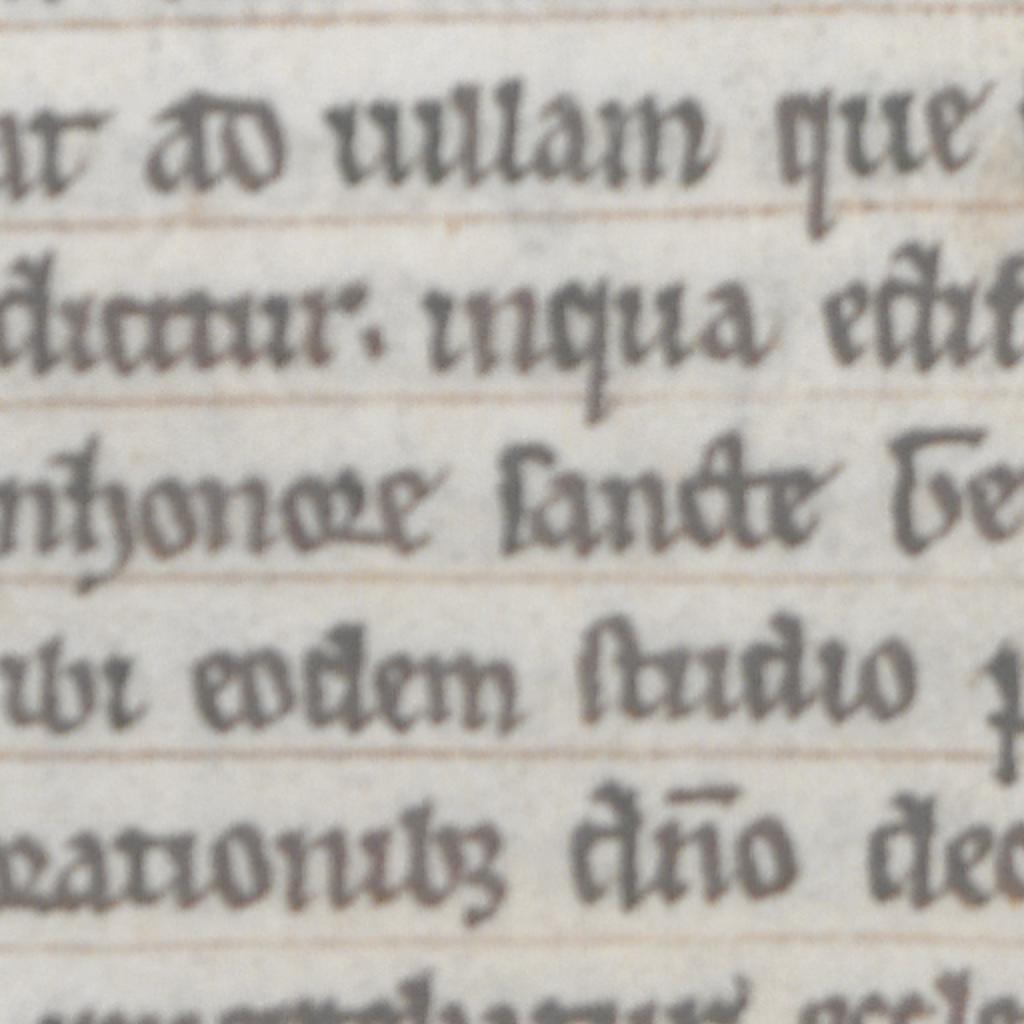 ad uillam que
dicitur. inqua edif
nhonore sancte be
ibi eodem studio
rationibꝫ dn̄o dec